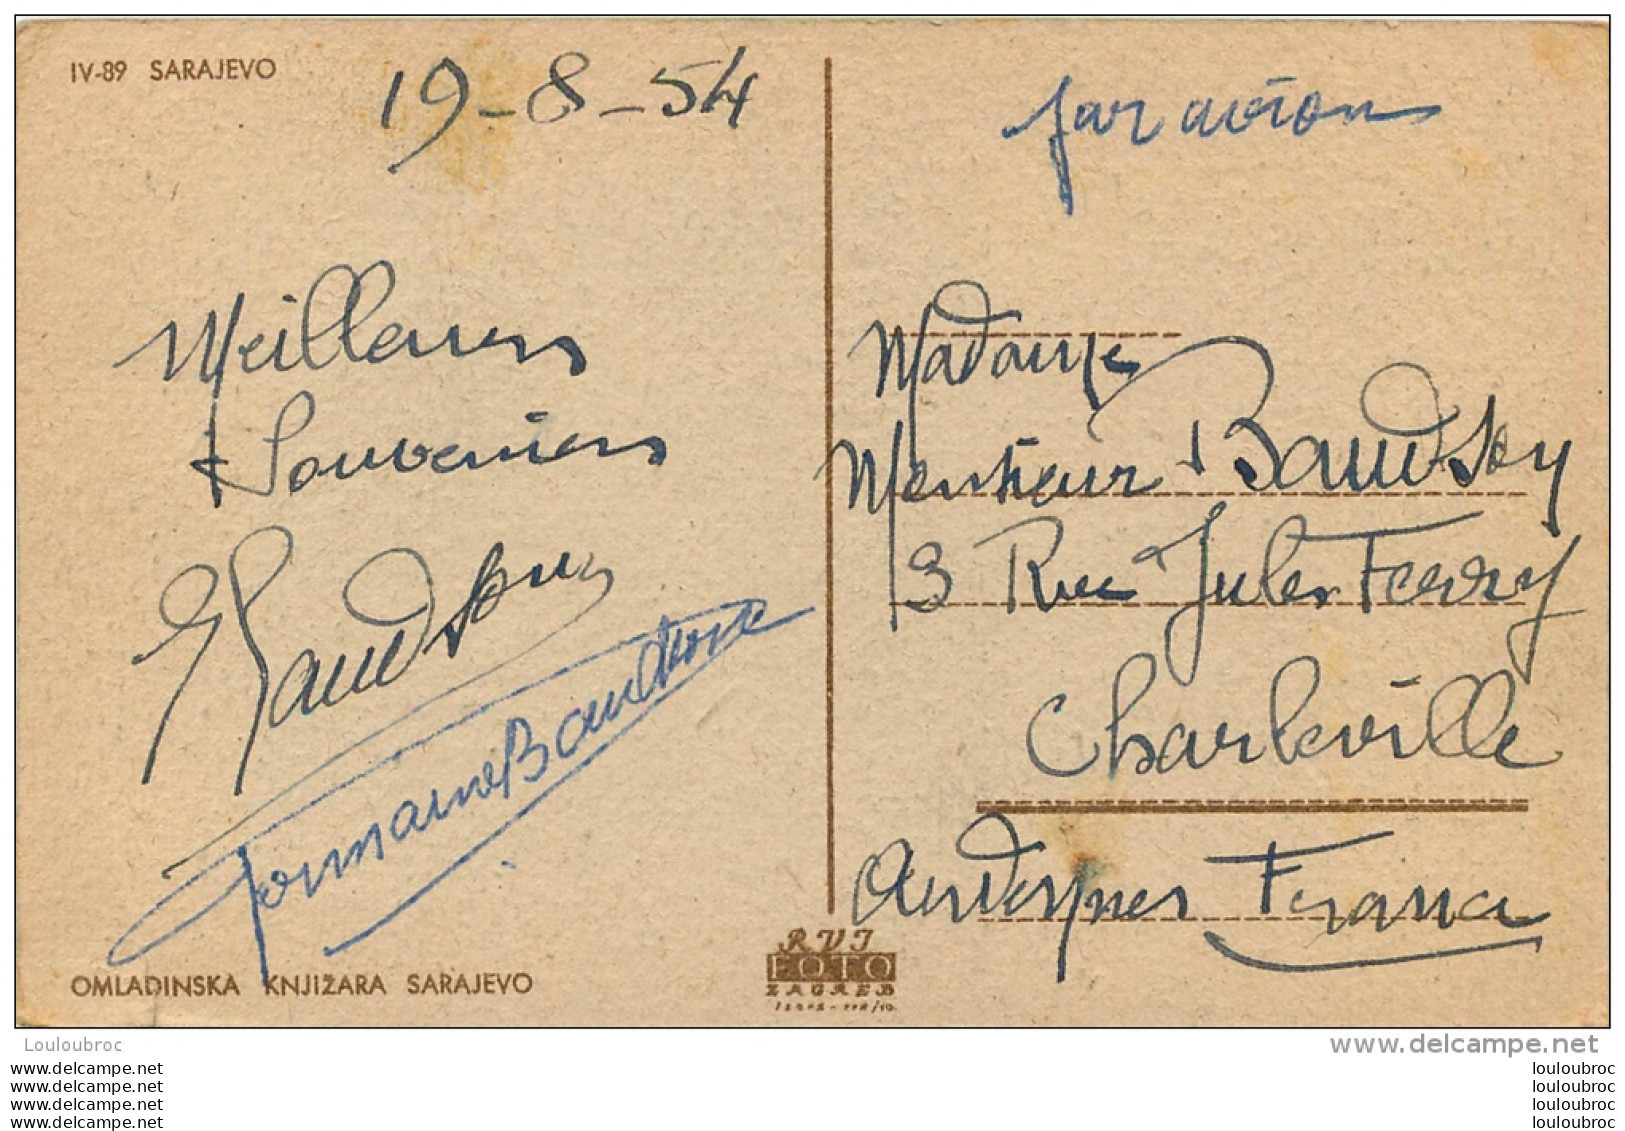 IV-89 SARAJEVO
19-8-54
par avion
Meilleurs
Souvenirs
Madame
Monsieur
3 Rue Jules Ferry
Charleville
Ardennes France
OMLADINSKA KNJIŽARA SARAJEVO
RVI
FOTO
ZAGREB
Louloubroc
www.delcampe.net
www.delcampe.net
www.delcampe.net
www.delcampe.net
www.delcampe.net
louloubroc
louloubroc
louloubroc
louloubroc